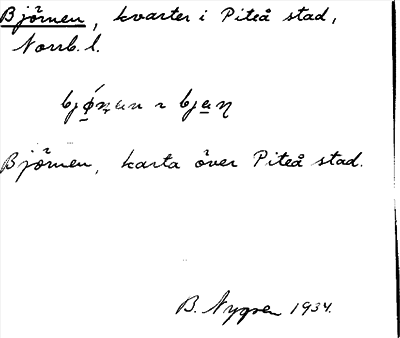 Björnen, kvarter i Piteå stad,
Norrb. l.
Björnen, karta över Piteå stad.
B. Nygren 1934.